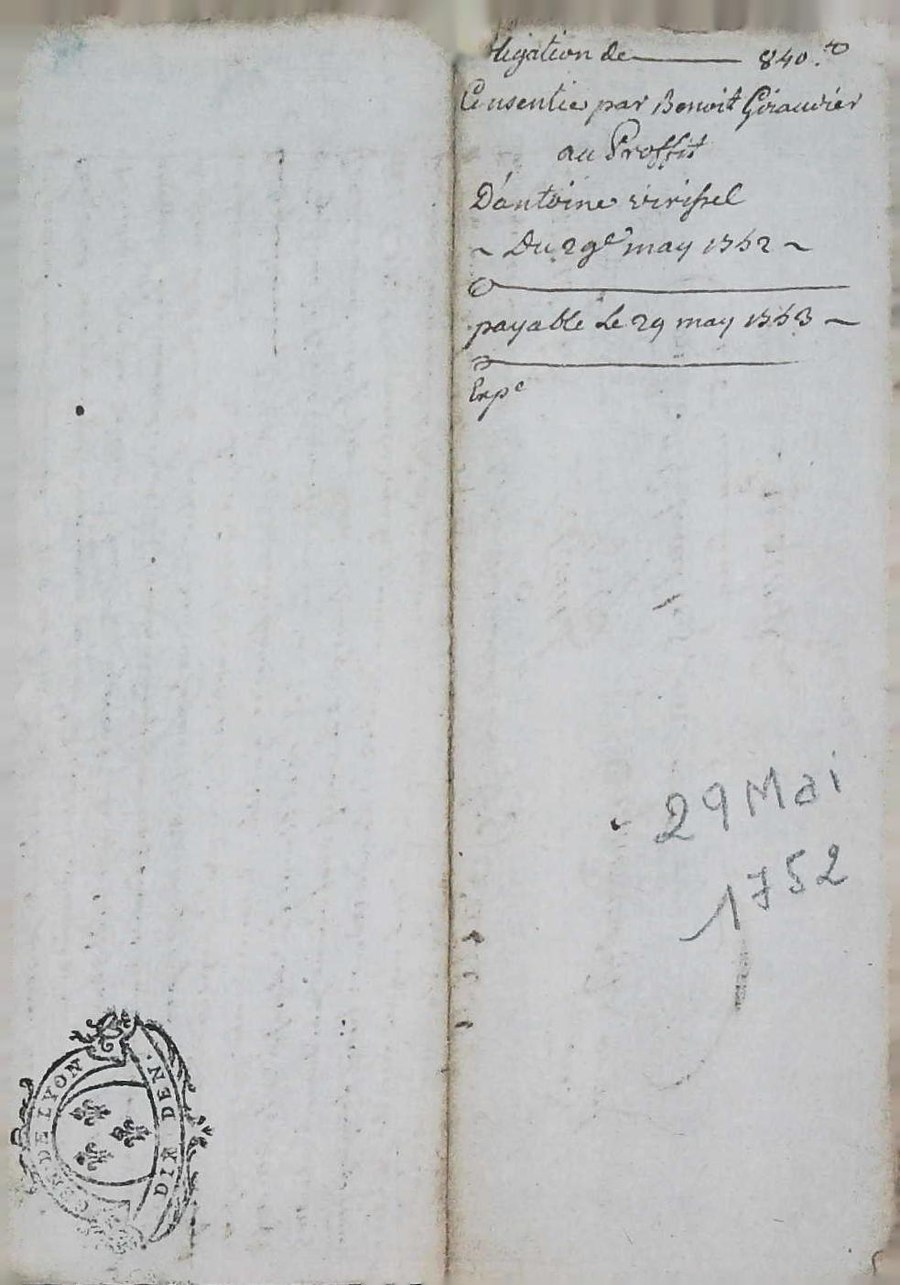 ligation de 840.
Consentie par Benoit Giraudier
au Proffit
D'antoine virissel
~ Du 29e may 1752 ~
payable Le 29 may 1753 ~
Expe
29 Mai
1752
GEN. DE LYON
DIX DEN.